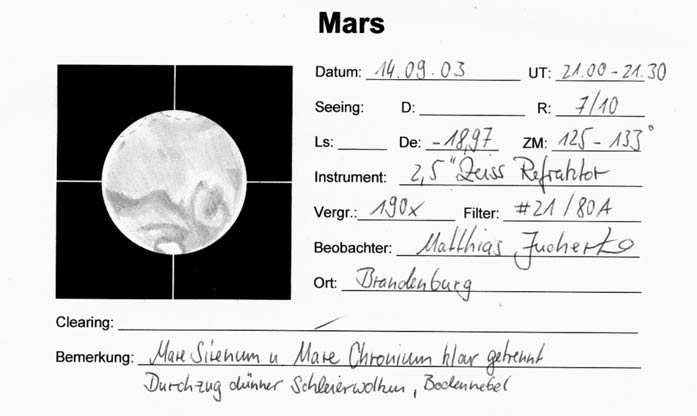 Mars
Datum: 14.09.03 UT: 21.00-21.30
Seeing: D: R: 7/10
Ls: De: -18,97 ZM: 125-133°
Instrument: 2,5" Zeiss Refraktor
Vergr.: 190x Filter: #21/80A
Beobachter: Matthias
Ort: Brandenburg
Clearing: /
Bemerkung: Mare Sirenum u Mare Chronium klar getrennt
Durchzug dünner Schleierwolken, Bodennebel